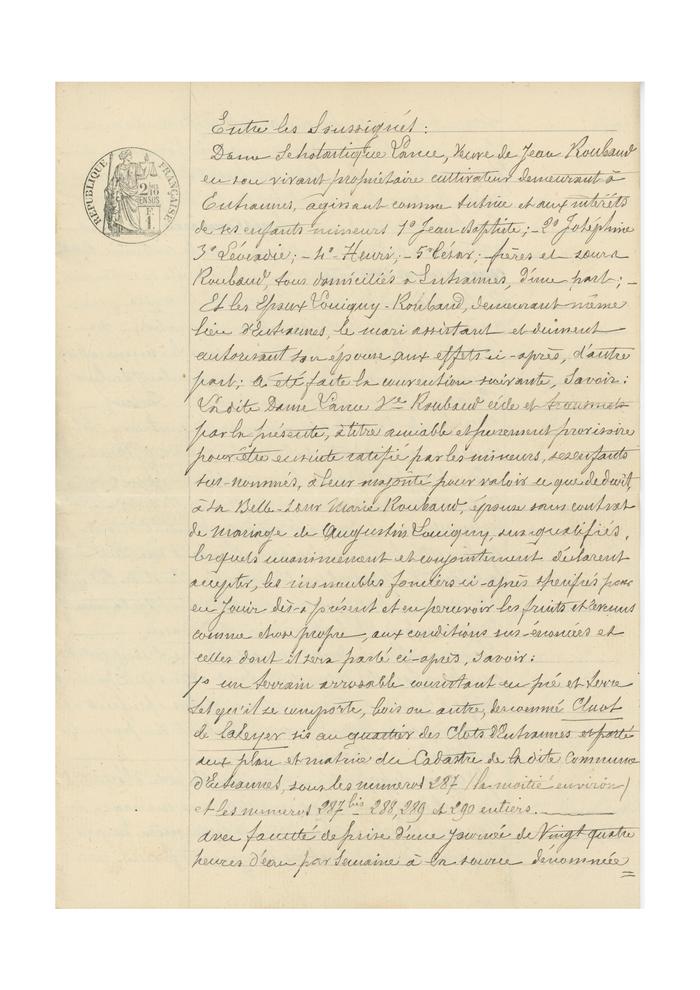 RÉPUBLIQUE FRANÇAISE
2/10 EN SUS
F. 1
Entre les Soussignés :
Dame Scholastique Lance, Veuve de Jean Roubaud
en son vivant propriétaire cultivateur demeurant à
Entraunes, agissant comme tutrice et aux intérêts
de ses enfants mineurs 1° Jean Baptiste ; - 2° Joséphine
3° Léocadie ; - 4° Henri ; - 5° César ; frères et sœurs
Roubaud, tous domiciliés à Entraunes, d'une part ; -
Et les Epoux Louiquy - Roubaud, demeurant même
lieu d'Entraunes, le mari assistant et dûment
autorisant son épouse aux effets ci-après, d'autre
part ; a été faite la convention suivante, Savoir :
La dite Dame Lance Vve Roubaud cède et transmet
par la présente, à titre amiable et purement provisoire
pour être ensuite ratifié par les mineurs, ses enfants
sus-nommés, à leur majorité pour valoir ce que de droit,
à sa Belle-Sœur Marie Roubaud, épouse sans contrat
de mariage de Augustin Louiquy, sus-qualifiés,
lesquels unanimement et conjointement déclarent
accepter, les immeubles fonciers ci-après spécifiés pour
en jouir dès-à-présent et en percevoir les fruits et revenus
comme chose propre, aux conditions sus-énoncées et
celles dont il sera parlé ci-après, savoir :
1° un terrain arrosable consistant en pré et terre
tel qu'il se comporte, bois ou autre, denommé Cluot
de la Leyer sis au quartier des Clots d'Entraunes et porté
aux plan et matrice du Cadastre de la dite Commune
d'Entraunes, sous les numéros 287 (la moitié environ)
et les numéros 287 bis - 288, 289 et 290 entiers.
avec faculté de prise d'une journée de Vingt quatre
heures d'eau par Semaine à la source dénommée